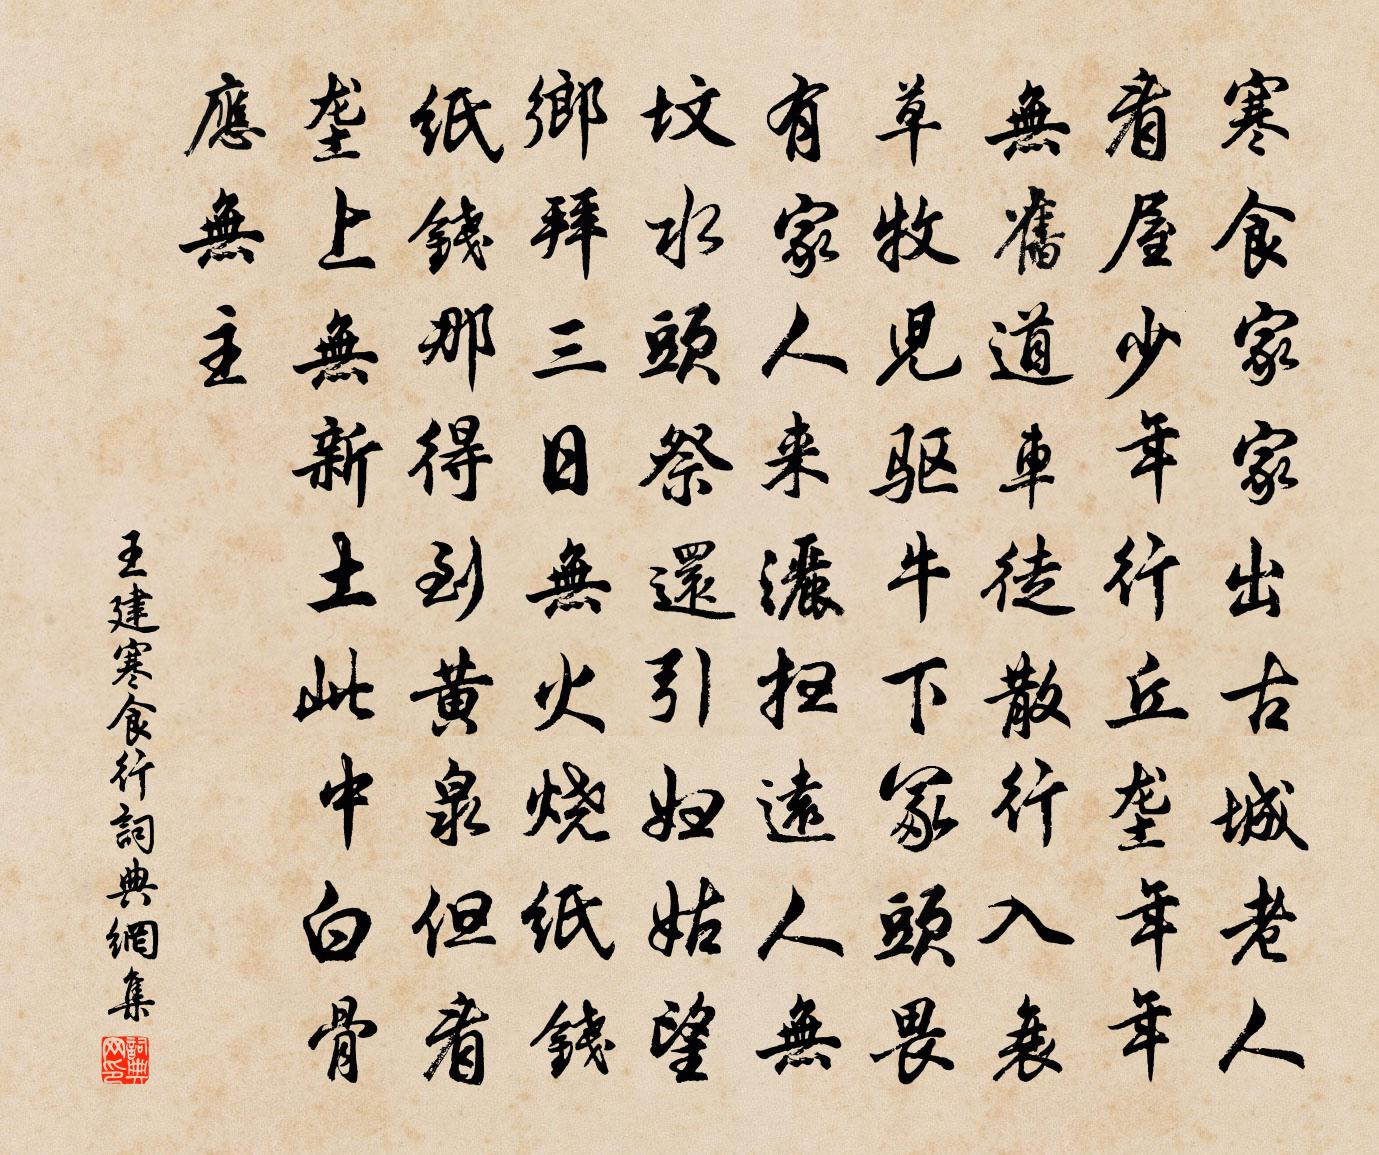 寒食家家出古城老人
看屋少年行丘垄年年
無舊道車徒散行入衰
草牧兒驱牛下冢頭畏
有家人来灑扫遠人無
坟水頭祭還引妇姑望
鄉拜三日無火烧纸錢
纸錢那得到黄泉但看
垄上無新土此中白骨
應無主
王建寒食行詞典網集
詞典网印